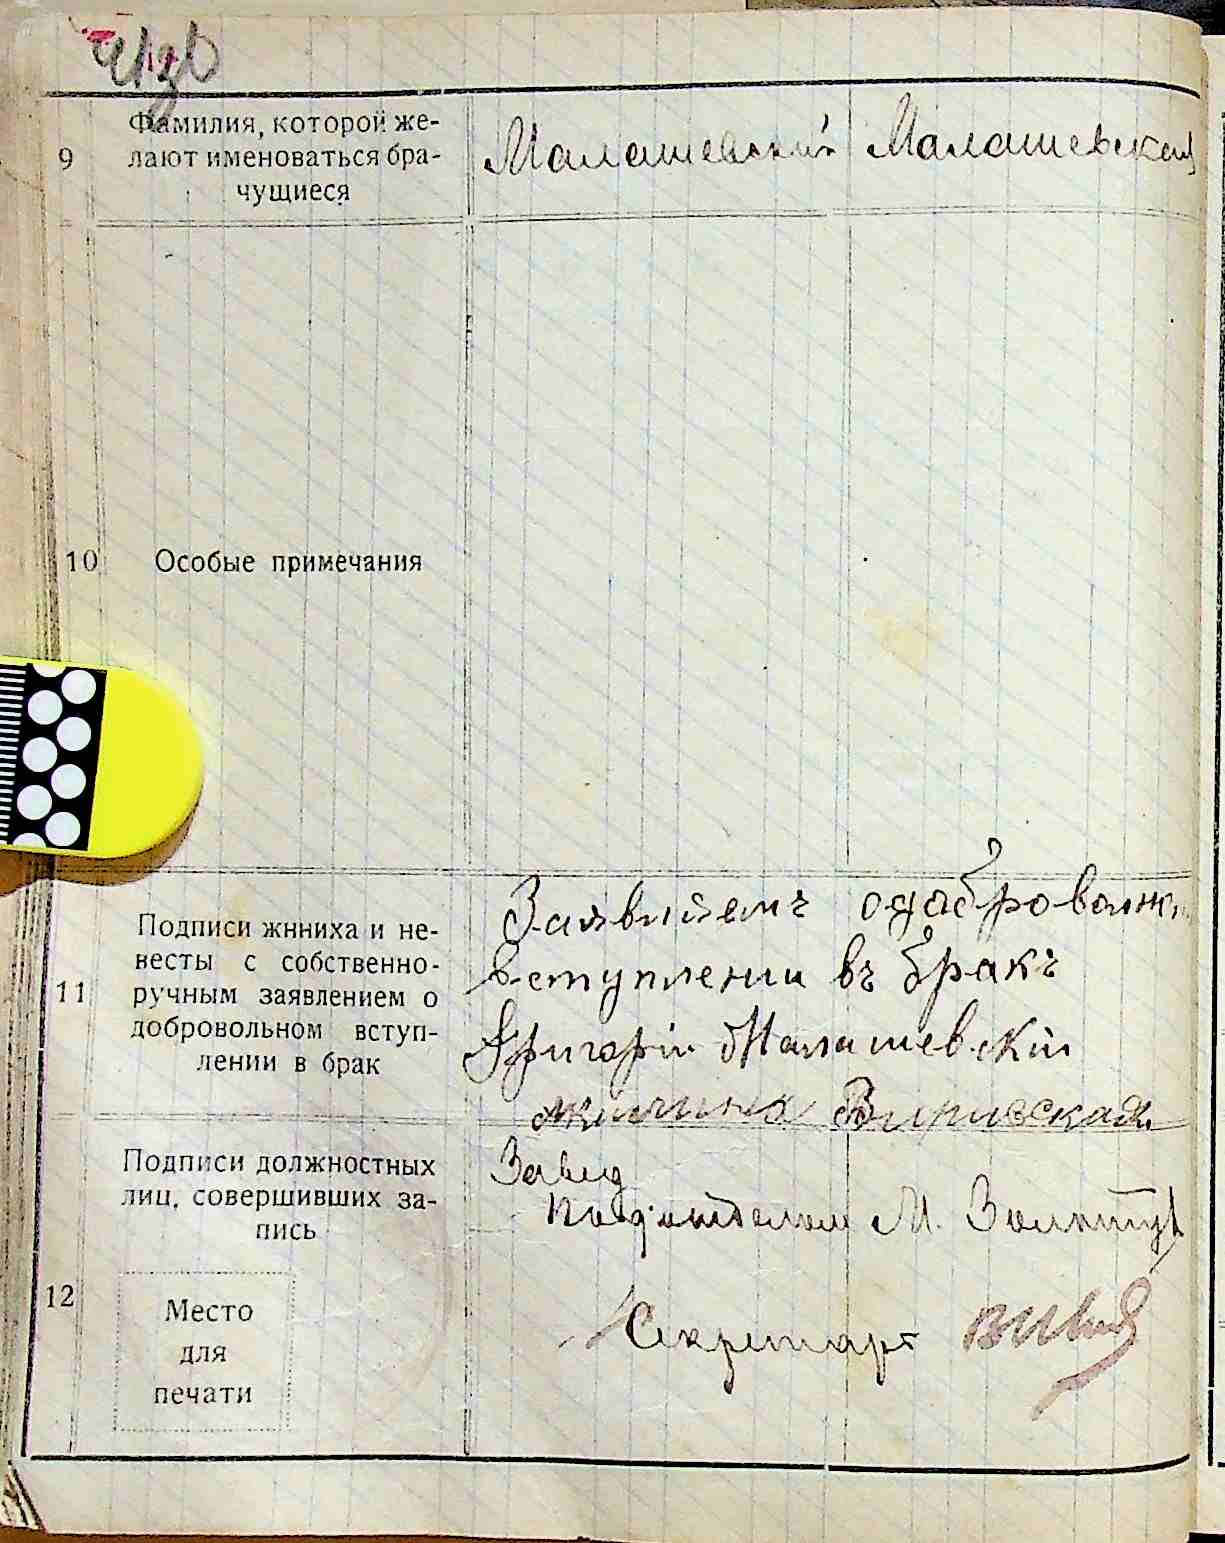 9
Фамилия, которой же-
лают именоваться бра-
чущиеся
Малашевский Малашевская
10
Особые примечания
11
Подписи жнниха и не-
весты с собственно-
ручным заявлением о
добровольном вступ-
лении в брак
вступлении въ бракъ
Григорій Малашевскій
12
Подписи должностных
лиц, совершивших за-
пись
Завед
Подотделом М.
Секретарь
Место
для
печати